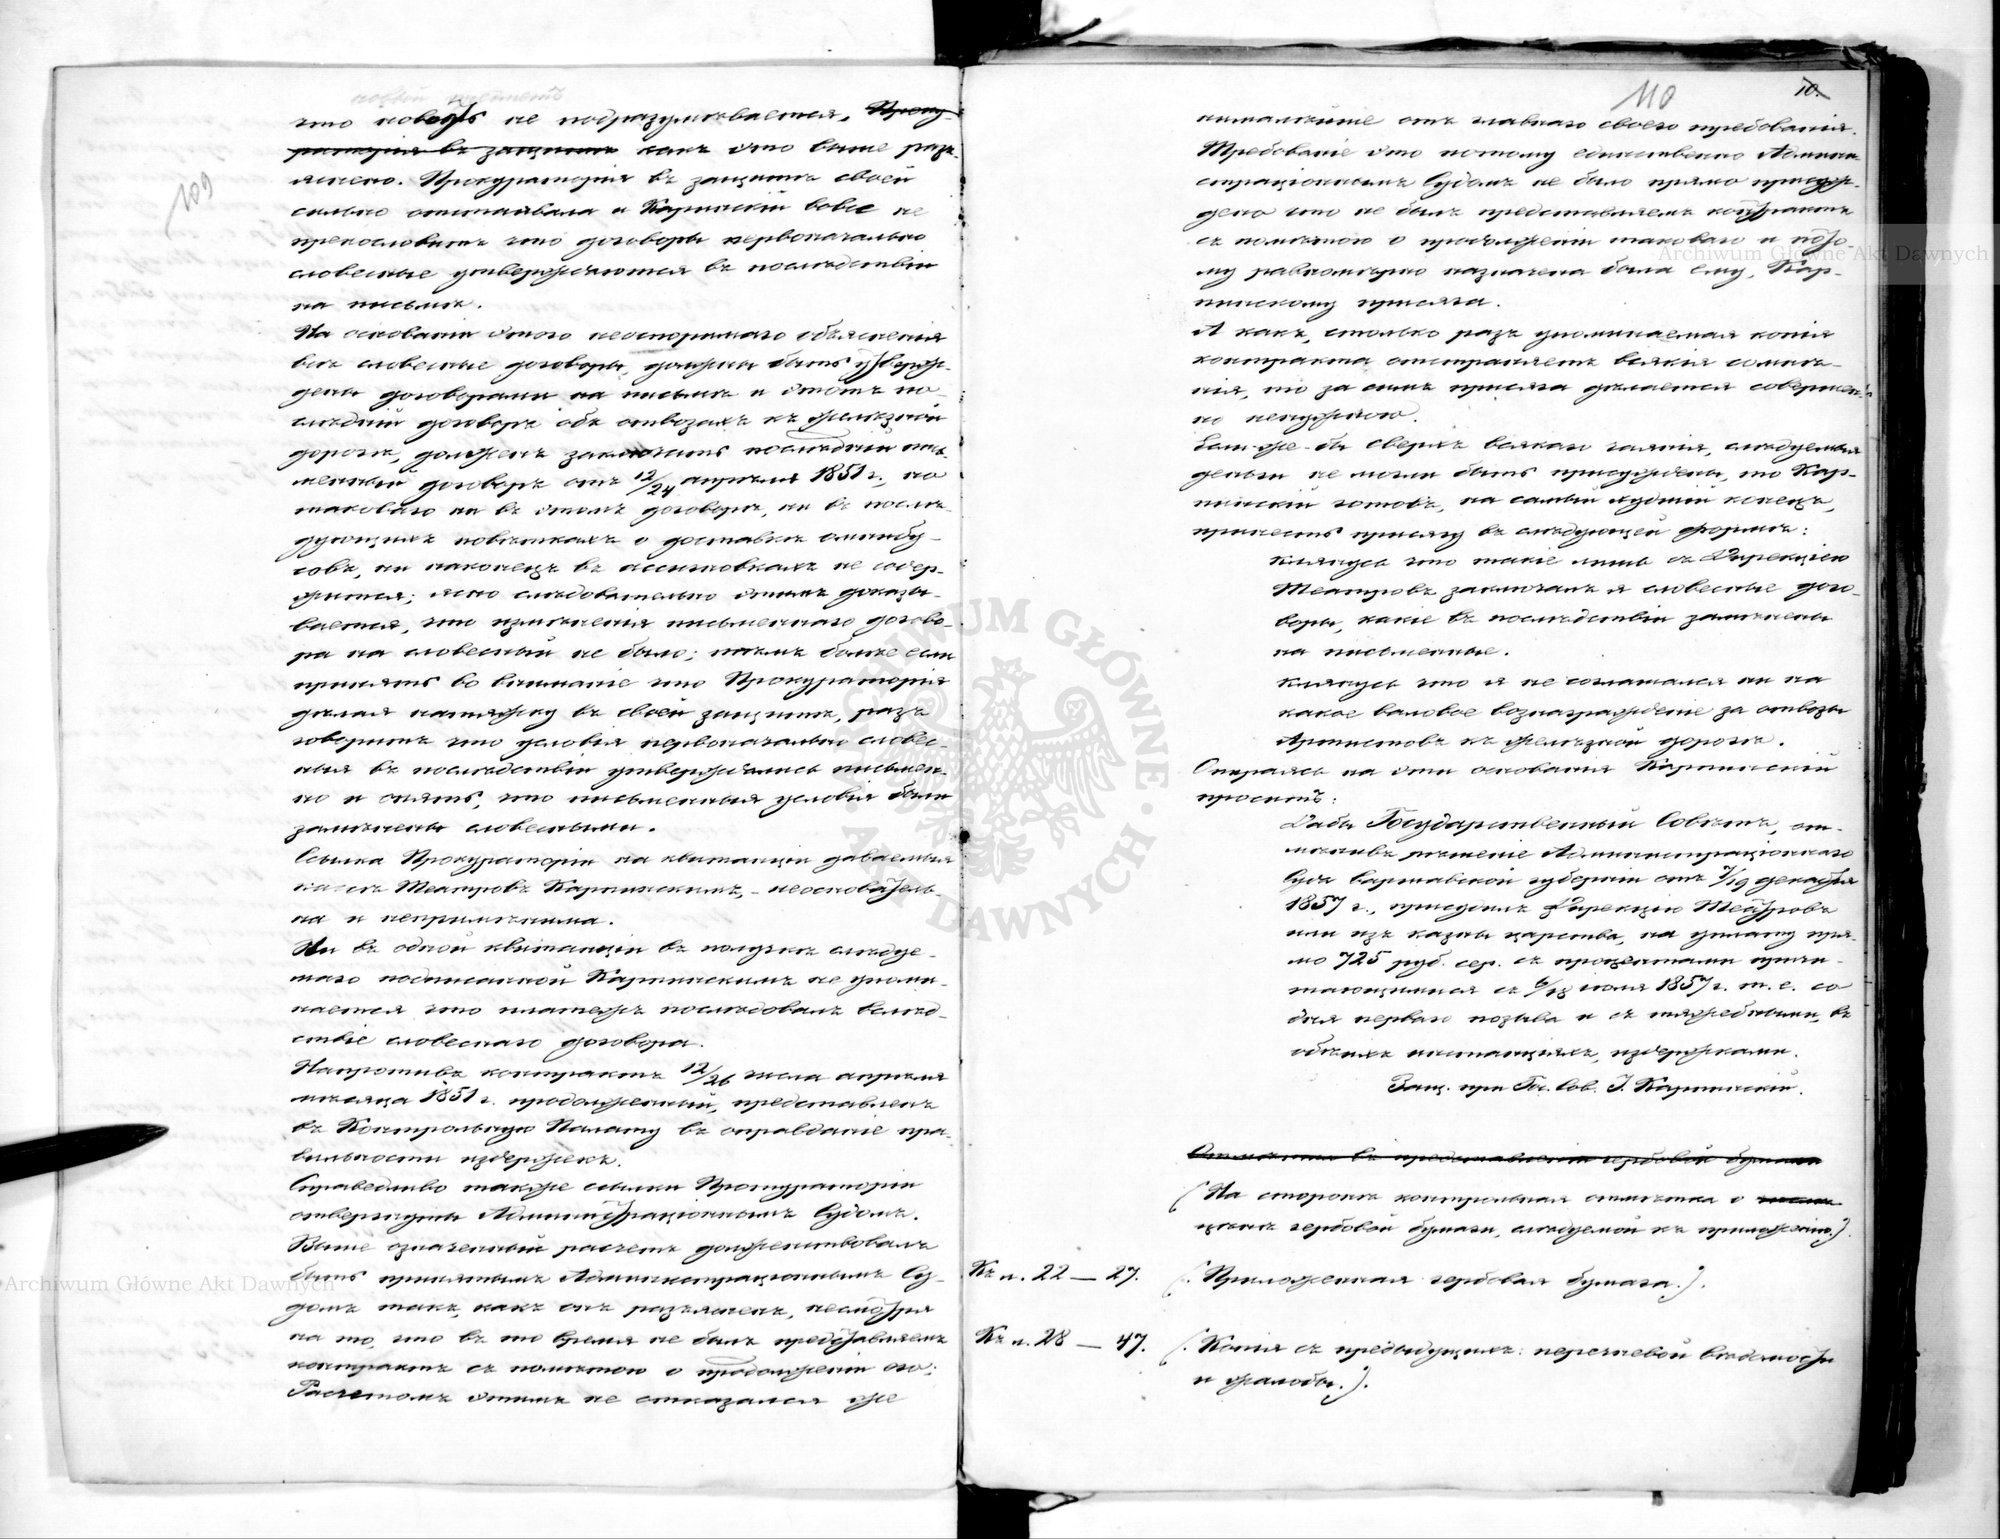 109
что новость не подразумѣвается, Проку-
раторія въ защитѣ какъ это выше разъ-
яснено. Прокураторія въ защитѣ своей
сильно отстаивала и Карпинскій вовсе не
прекословитъ что договоры первоначально
словесные утверждаются въ послѣдствіи
на письмѣ.
На основаніи этого неоспоримаго объясненія
всѣ словесные договоры, должны быть утверж-
дены договорами на письмѣ и этотъ по-
слѣдній договоръ объ отвозахъ къ желѣзной
дорогѣ, долженъ заключать послѣдній пись-
менный договоръ отъ 12/24 апрѣля 1851 г., но
таковаго ни въ этомъ договорѣ, ни въ послѣ-
дующихъ повѣсткахъ о доставкѣ омнибу-
совъ, ни наконецъ въ ассигновкахъ не содер-
жится; ясно слѣдовательно этимъ доказы-
вается, что измѣненія письменнаго догово-
ра на словесный не было; тѣмъ болѣе если
принять во вниманіе что Прокураторія
дѣлая натяжку въ своей защитѣ, разъ
говоритъ что условія первоначально словес-
ныя въ послѣдствіи утверждались письмен-
но и опять, что письменныя условія были
замѣнены словесными.
Ссылка Прокураторіи на квитанціи даваемыя
кассѣ Театровъ Карпинскимъ, - неоснователь-
на и непримѣнима.
Ни въ одной квитанціи въ получкѣ слѣдуе-
маго подписанной Карпинскимъ не упоми-
нается что платежъ послѣдовалъ вслѣд-
ствіе словеснаго договора.
Напротивъ контрактъ 12/26 числа апрѣля
мѣсяца 1851 г. продолженный, представленъ
въ Контрольную Палату въ оправданіе пра-
вильности издержекъ.
Справедливо также ссылки Прокураторіи
отвергнуты Административнымъ Судомъ.
Выше означенный расчетъ долженствовалъ
быть принятымъ Администраціоннымъ Су-
домъ такъ, какъ онъ разъясненъ, несмотря
на то, что въ то время не былъ представленъ
контрактъ съ помѣткою о продолженіи его:
Расчетомъ этимъ не отказался же
110
10.
нималѣйше отъ главнаго своего требованія.
Требованіе это потому единственно Админи-
страціоннымъ Судомъ не было прямо присуж-
дено что не былъ представляемъ контрактъ
съ помѣткою о продолженіи таковаго и пото-
му равномѣрно назначена была ему, Кар-
пинскому присяга.
А какъ, столько разъ упоминаемая копія
контракта отстраняетъ всякія сомнѣ-
нія, то за симъ присяга дѣлается совершен-
но ненужною.
Если-же-бы сверхъ всякаго чаянія, слѣдуемыя
деньги не могли быть присуждены, то Кар-
пинскій готовъ, на самый худшій конецъ,
принесть присягу въ слѣдующей формѣ:
Клянусь что такіе лишь съ Дирекціею
Театровъ заключалъ я словесные дого-
воры, какіе въ послѣдствіи замѣнены
на письменные.
Клянусь что я не соглашался ни на
какое валовое вознагражденіе за отвозы
Артистовъ къ желѣзной дорогѣ.
Опираясь на эти основанія Карпинскій
проситъ:
Дабы Государственный Совѣтъ, от-
мѣнивъ рѣшеніе Администраціоннаго
Суда Варшавской губерніи отъ 7/19 декабря
1857 г., присудилъ Дирекцію Театровъ
или изъ казны царства, на уплату пря-
мо 725 руб. сер. съ процентами причи-
тающимися съ 6/18 іюля 1857 г. т. е. со
дня перваго позыва и съ тяжебными, въ
обѣихъ инстанціяхъ, издержками.
Защ. при Гос. Сов. I. Карпинскій.
Отмѣтка въ представленіи гербовой бумаги
(На сторонѣ контрольная отмѣтка о
цѣнѣ гербовой бумаги, слѣдуемой къ приложенію.).
Къ п. 22 — 27. (. Приложенная гербовая бумага.).
Къ п. 28 — 47. (. Копія съ предыдущихъ: перечневой вѣдомости
и жалобы.).
ARCHIWUM GŁÓWNE AKT DAWNYCH
Archiwum Główne Akt Dawnych
Archiwum Główne Akt Dawnych